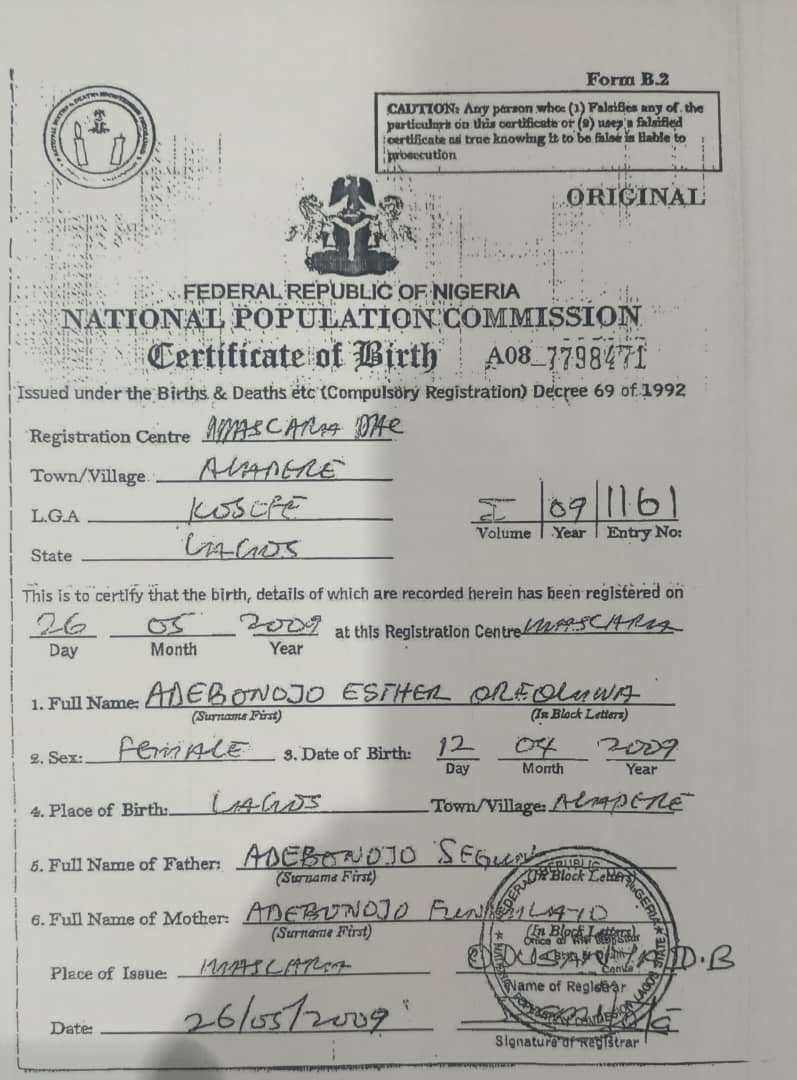 Form B.2
CAUTION: Any person who: (1) Falsifies any of the
particulars on this certificate or (2) uses a falsified
certificate as true knowing it to be false is liable to
prosecution
ORIGINAL
FEDERAL REPUBLIC OF NIGERIA
NATIONAL POPULATION COMMISSION
Certificate of Birth A08 7798471
Issued under the Births & Deaths etc (Compulsory Registration) Decree 69 of 1992
Registration Centre
Town/Village ALAPERE
L.G.A KOSOFE
State LAGOS
I 09 1161
Volume Year Entry No:
This is to certify that the birth, details of which are recorded herein has been registered on
26 05 2009 at this Registration Centre
Day Month Year
1. Full Name: ADEBONOJO ESTHER OREOLUWA
(Surname First) (In Block Letters)
2. Sex: FEMALE 3. Date of Birth: 12 04 2009
Day Month Year
4. Place of Birth: LAGOS Town/Village: ALAPERE
5. Full Name of Father: ADEBONOJO SEGUN
(Surname First) (In Block Letters)
6. Full Name of Mother: ADEBONOJO
(Surname First) (In Block Letters)
Place of Issue:
Name of Registrar
Date: 26/05/2009
Signature of Registrar